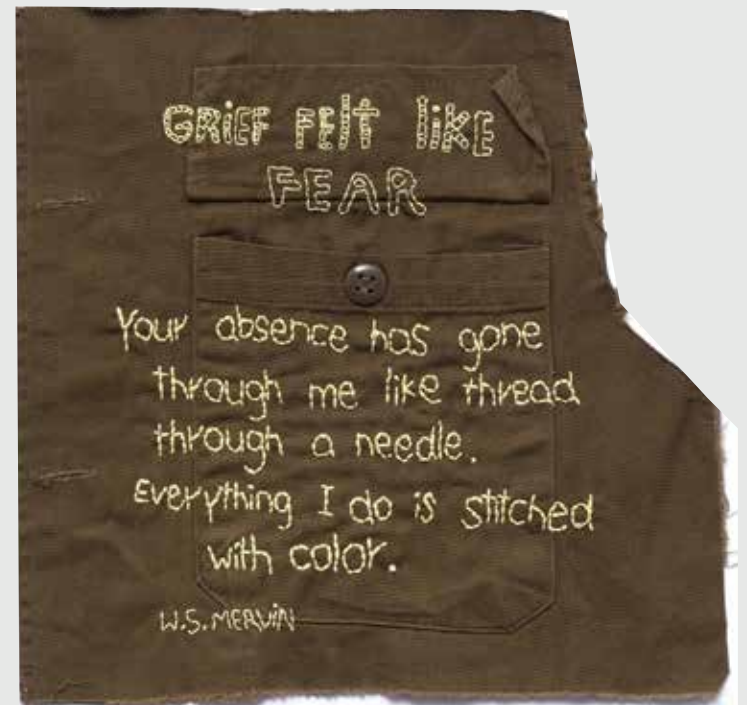 GRiEF FElt liKE
FEAR
Your absence has gone
through me like thread
through a needle.
Everything I do is stitched
with color.
W.S. MERViN